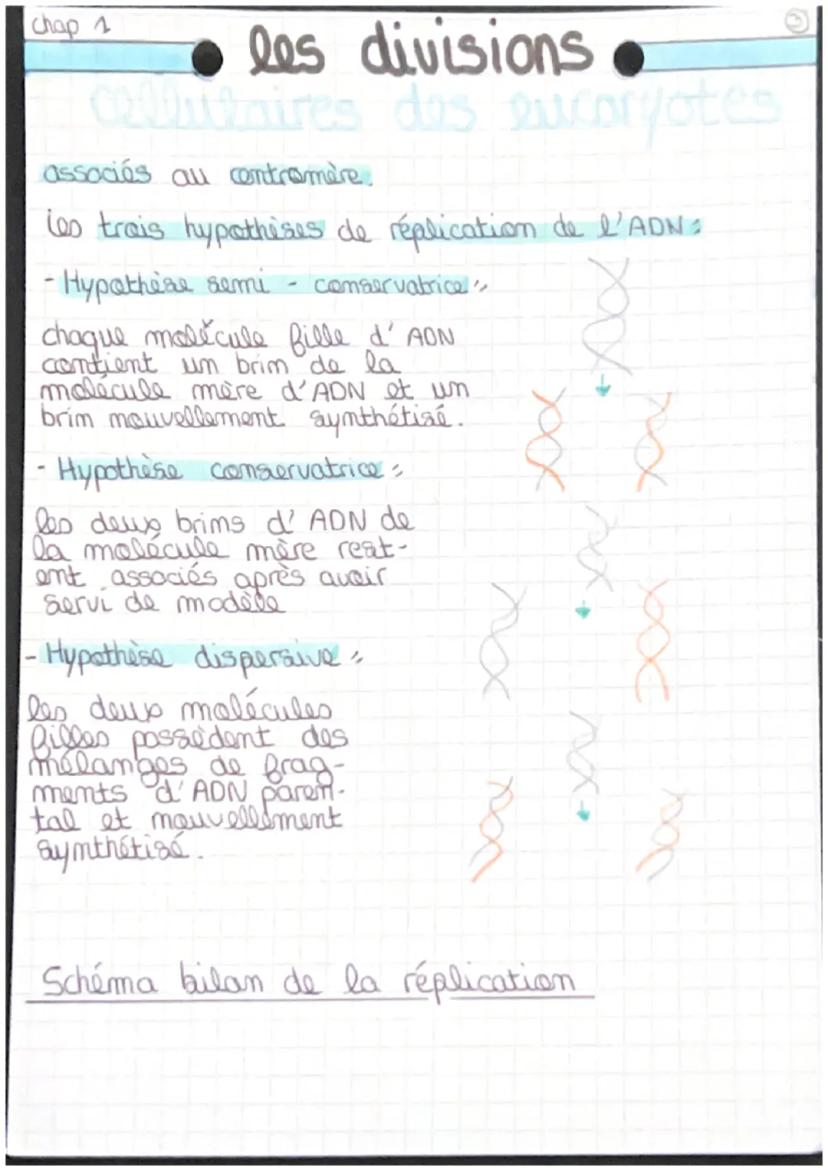 chap 1
3
les divisions
cellulaires des eucaryotes
associés au centromère.
les trois hypothèses de réplication de l'ADN :
- Hypothèse semi - conservatrice :
chaque molécule fille d'ADN
contient un brin de la
molécule mère d'ADN et un
brin nouvellement synthétisé.
- Hypothèse conservatrice :
les deux brins d'ADN de
la molécule mère rest-
ent associés après avoir
servi de modèle
- Hypothèse dispersive :
les deux molécules
filles possèdent des
mélanges de frag-
ments d'ADN paren-
tal et nouvellement
synthétisé.
Schéma bilan de la réplication